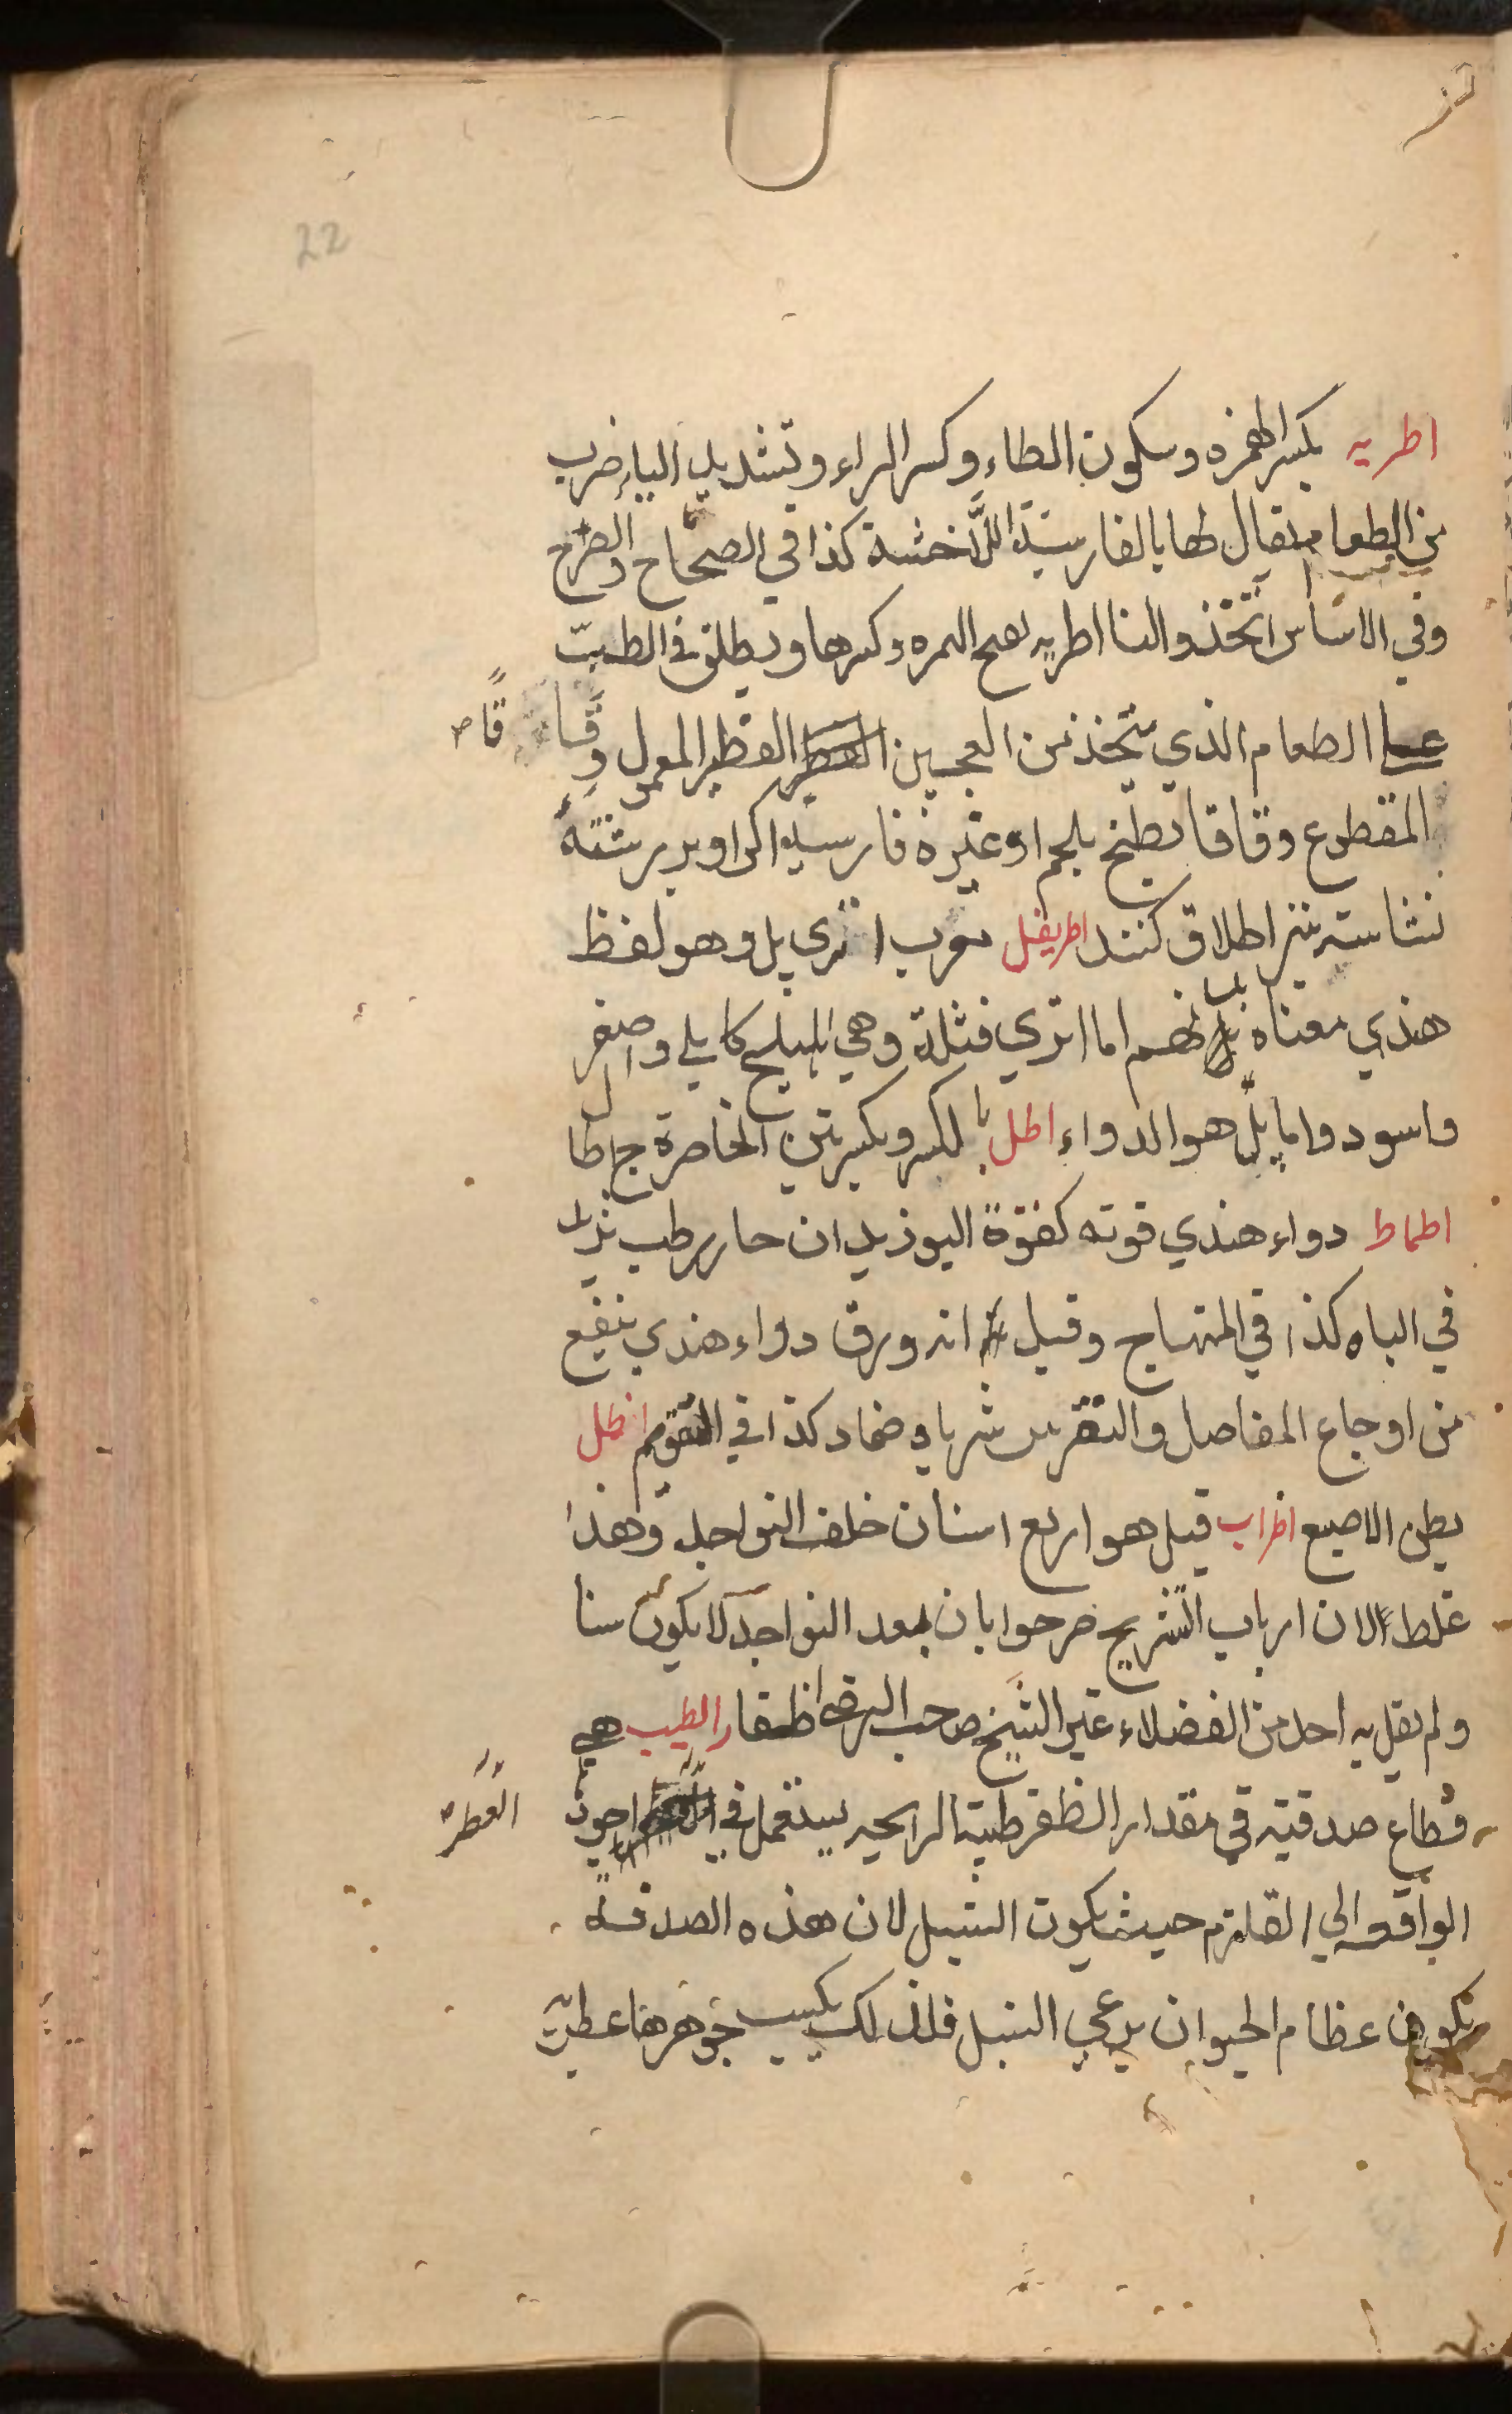 22
اطريه بكسر الهمزه وسكون الطاء وكسر الراء وتشديد الياء ضرب
من الطعام يقال لها بالفارسية خشة كذا في الصحاح والصرح
وفي الاساس اتخذوا لنا اطريه بفتح الهمزه وكسرها ويطلق في الطب
علي الطعام الذي يتخذ من العجين الفطير المعمول
المقطوع وقاقا يطبخ بلحم او غيره فارسية اكرا وبر رشته
نشاسته نيز اطلاق كنند اطريفل معرب اتري پل وهو لفظ
هندي معناه اما اتري فثلثة وهي اهليلج كابلي واصفر
واسود واما پل هو الدواء اطل بالكسر وبكسرتين الخاصرة ج اطا
ل
اطماط دواء هندي قوته كقوة البوذيدان حار رطب يزيد
في الباه كذا في المنهاج وقيل انه ورق دواء هندي ينفع
من اوجاع المفاصل والنقرس شربا وضماد كذا في التقويم اظل
بطن الاصبع اضراب قيل هو اربع اسنان خلف النواجد وهذا
غلط لان ارباب التشريح صرحوا بان بعد النواجد لا يكون سنا
ولم يقل به احد من الفضلاء غير الشيخ صاحب اظفار الطيب هي
قطاع صدقية في مقدار الظفر طيبة الرايحه يستعمل في اجود
العطر
الواقعه الي القلزم حيث يكون السنبل لان هذه الصدفة
يكون عظام الحيوان يرعي السنبل فلذلك يكسب جوهرها عطرية